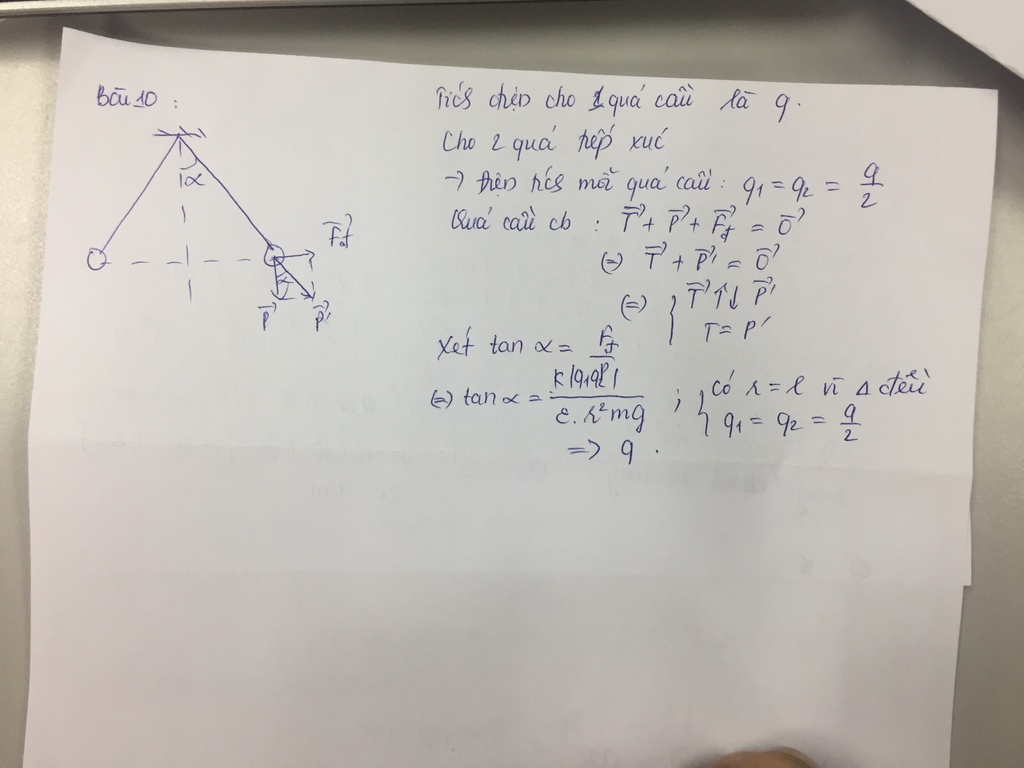 Bài 10 :
α
F⃗đ
P⃗
P⃗'
Tích điện cho 1 quả cầu là q.
Cho 2 quả tiếp xúc
→ điện tích mỗi quả cầu : q₁ = q₂ = q/2
Quả cầu cb : T⃗ + P⃗ + F⃗đ = 0⃗
(=) T⃗ + P⃗' = 0⃗
(=) { T⃗ ↑↓ P⃗'
T = P'
Xét tan α = Fđ/P
(=) tan α = k|q₁q₂|/ε.r²mg ; { có r = l vì Δ đều
q₁ = q₂ = q/2
=> q .